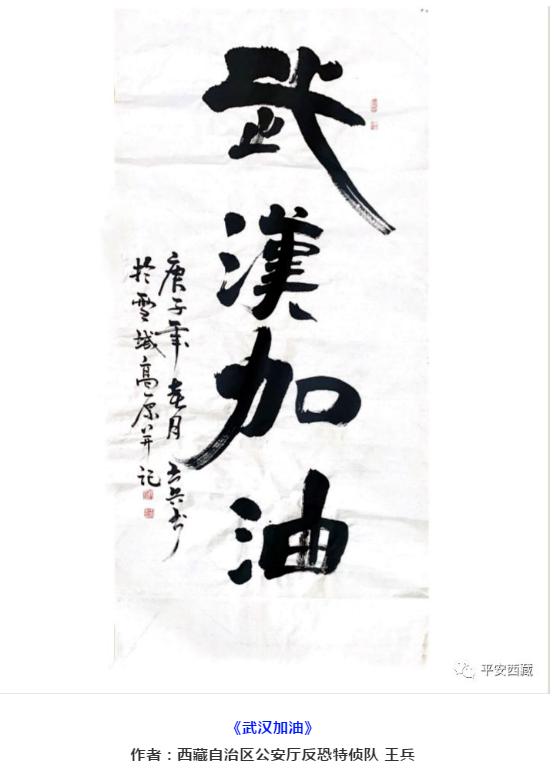 武漢加油
庚子年春月王兵书
於雪域高原并记
平安西藏
《武汉加油》
作者：西藏自治区公安厅反恐特侦队 王兵